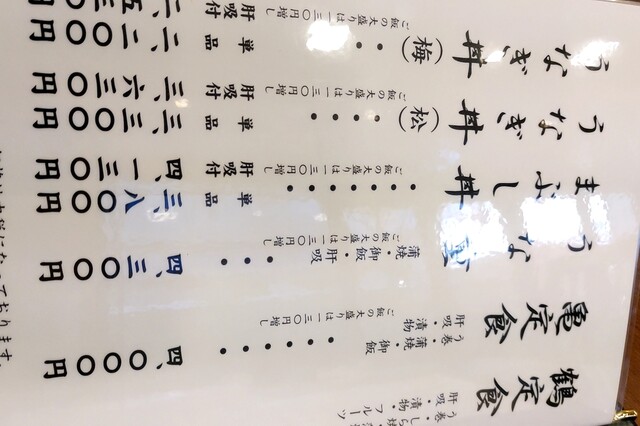 鶴定食
肝吸・漬物・フルーツ
亀定食
う巻・蒲焼・御飯
肝吸・漬物
ご飯の大盛りは一三〇円増し
四、〇〇〇円
うな重
蒲焼・御飯・肝吸
ご飯の大盛りは一三〇円増し
四、三〇〇円
まぶし丼
単品 三、八〇〇円
肝吸付 四、一三〇円
ご飯の大盛りは一三〇円増し
うなぎ丼(松)
単品 三、三〇〇円
肝吸付 三、六三〇円
ご飯の大盛りは一三〇円増し
うなぎ丼(梅)
単品 二、二〇〇円
肝吸付
ご飯の大盛りは一三〇円増し
になっております。